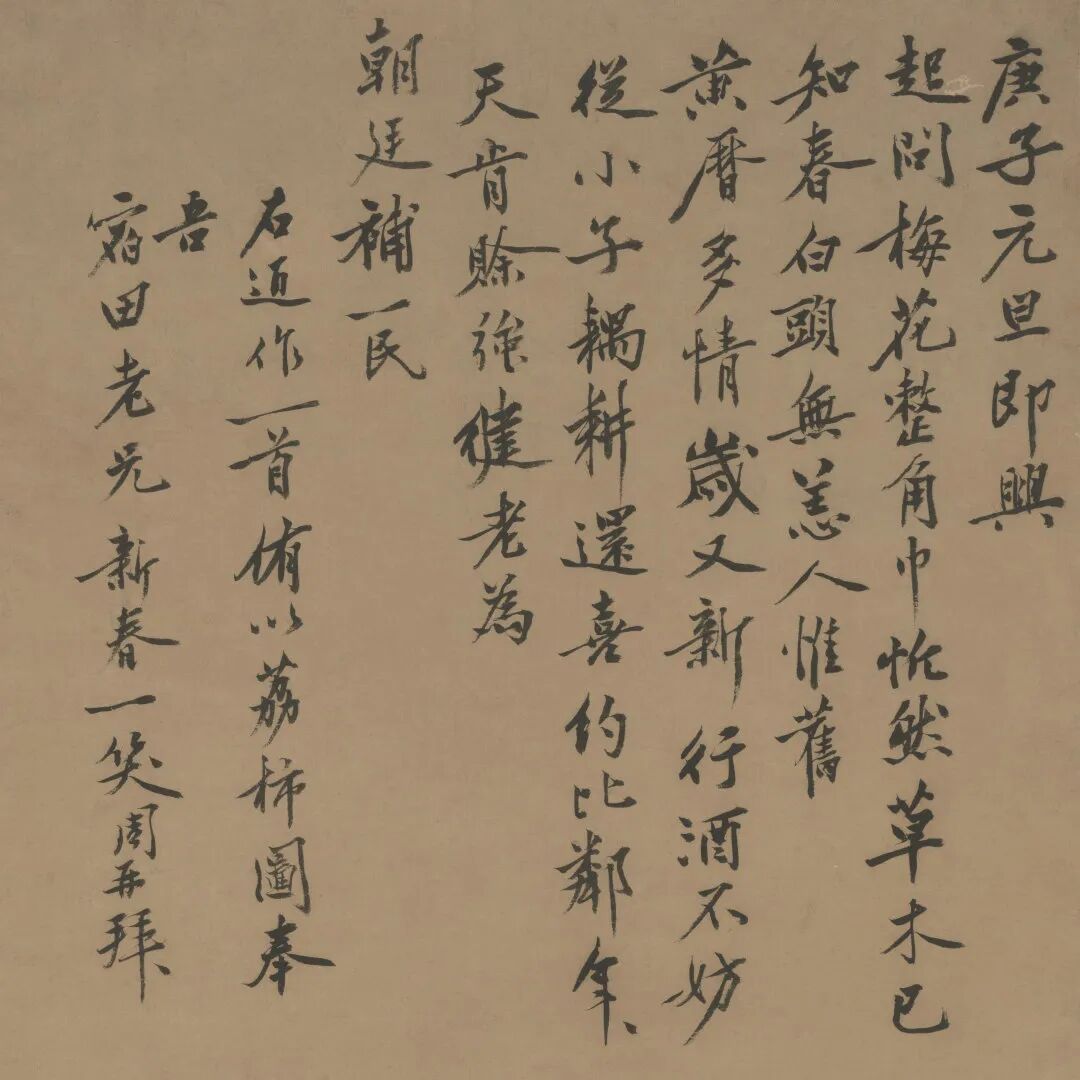 庚子元旦即興
起問梅花整角巾恍然草木已
知春白頭無恙人惟舊
黄曆多情歲又新行酒不妨
從小子耦耕還喜約比鄰年、
天肯賒強健老為
朝廷補一民
右近作一首侑以荔柿圖奉
吾
窘田老兄新春一笑周再拜、